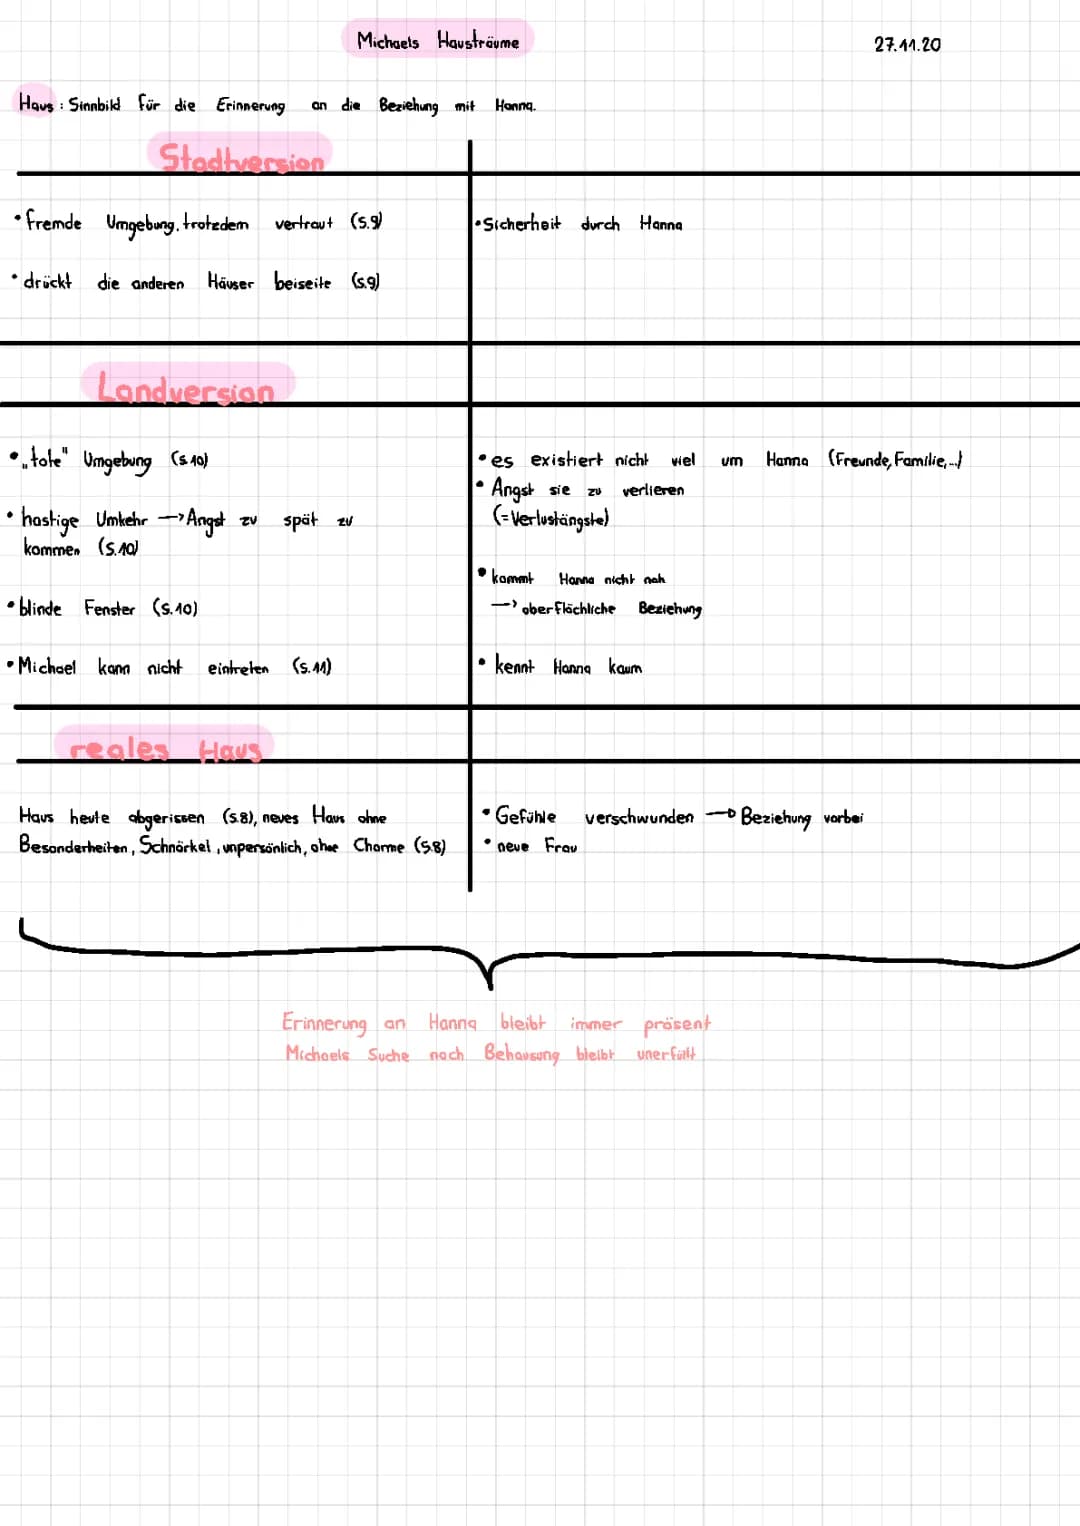 Michaels Hausträume
27.11.20
Haus : Sinnbild für die Erinnerung an die Beziehung mit Hanna.
Stadtversion
• fremde Umgebung, trotzdem vertraut (S.9)
• Sicherheit durch Hanna
• drückt die anderen Häuser beiseite (S.9)
Landversion
• „tote" Umgebung (S.10)
• es existiert nicht viel um Hanna (Freunde, Familie,...)
• Angst sie zu verlieren
(= Verlustängste)
• hastige Umkehr → Angst zu spät zu
kommen (S.10)
• kommt Hanna nicht nah
→ oberflächliche Beziehung
• blinde Fenster (S.10)
• Michael kann nicht eintreten (S.11)
• kennt Hanna kaum
reales Haus
Haus heute abgerissen (S.8), neues Haus ohne
Besonderheiten, Schnörkel, unpersönlich, ohne Charme (S.8)
• Gefühle verschwunden → Beziehung vorbei
• neue Frau
Erinnerung an Hanna bleibt immer präsent
Michaels Suche nach Behausung bleibt unerfüllt